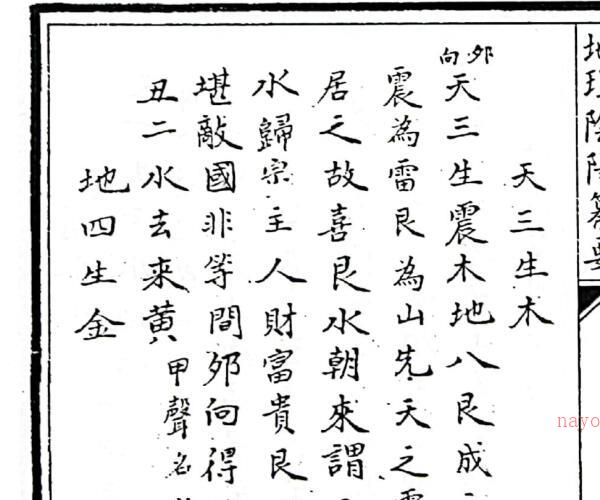 地理陰陽纂要
天三生木
卯向
天三生震木地八艮成
震為雷艮為山先天之
居之故喜艮水朝來謂
水歸宗主人財富貴艮
堪敵國非等間卯向得
丑二水去來黄甲聲名
地四生金
nayo